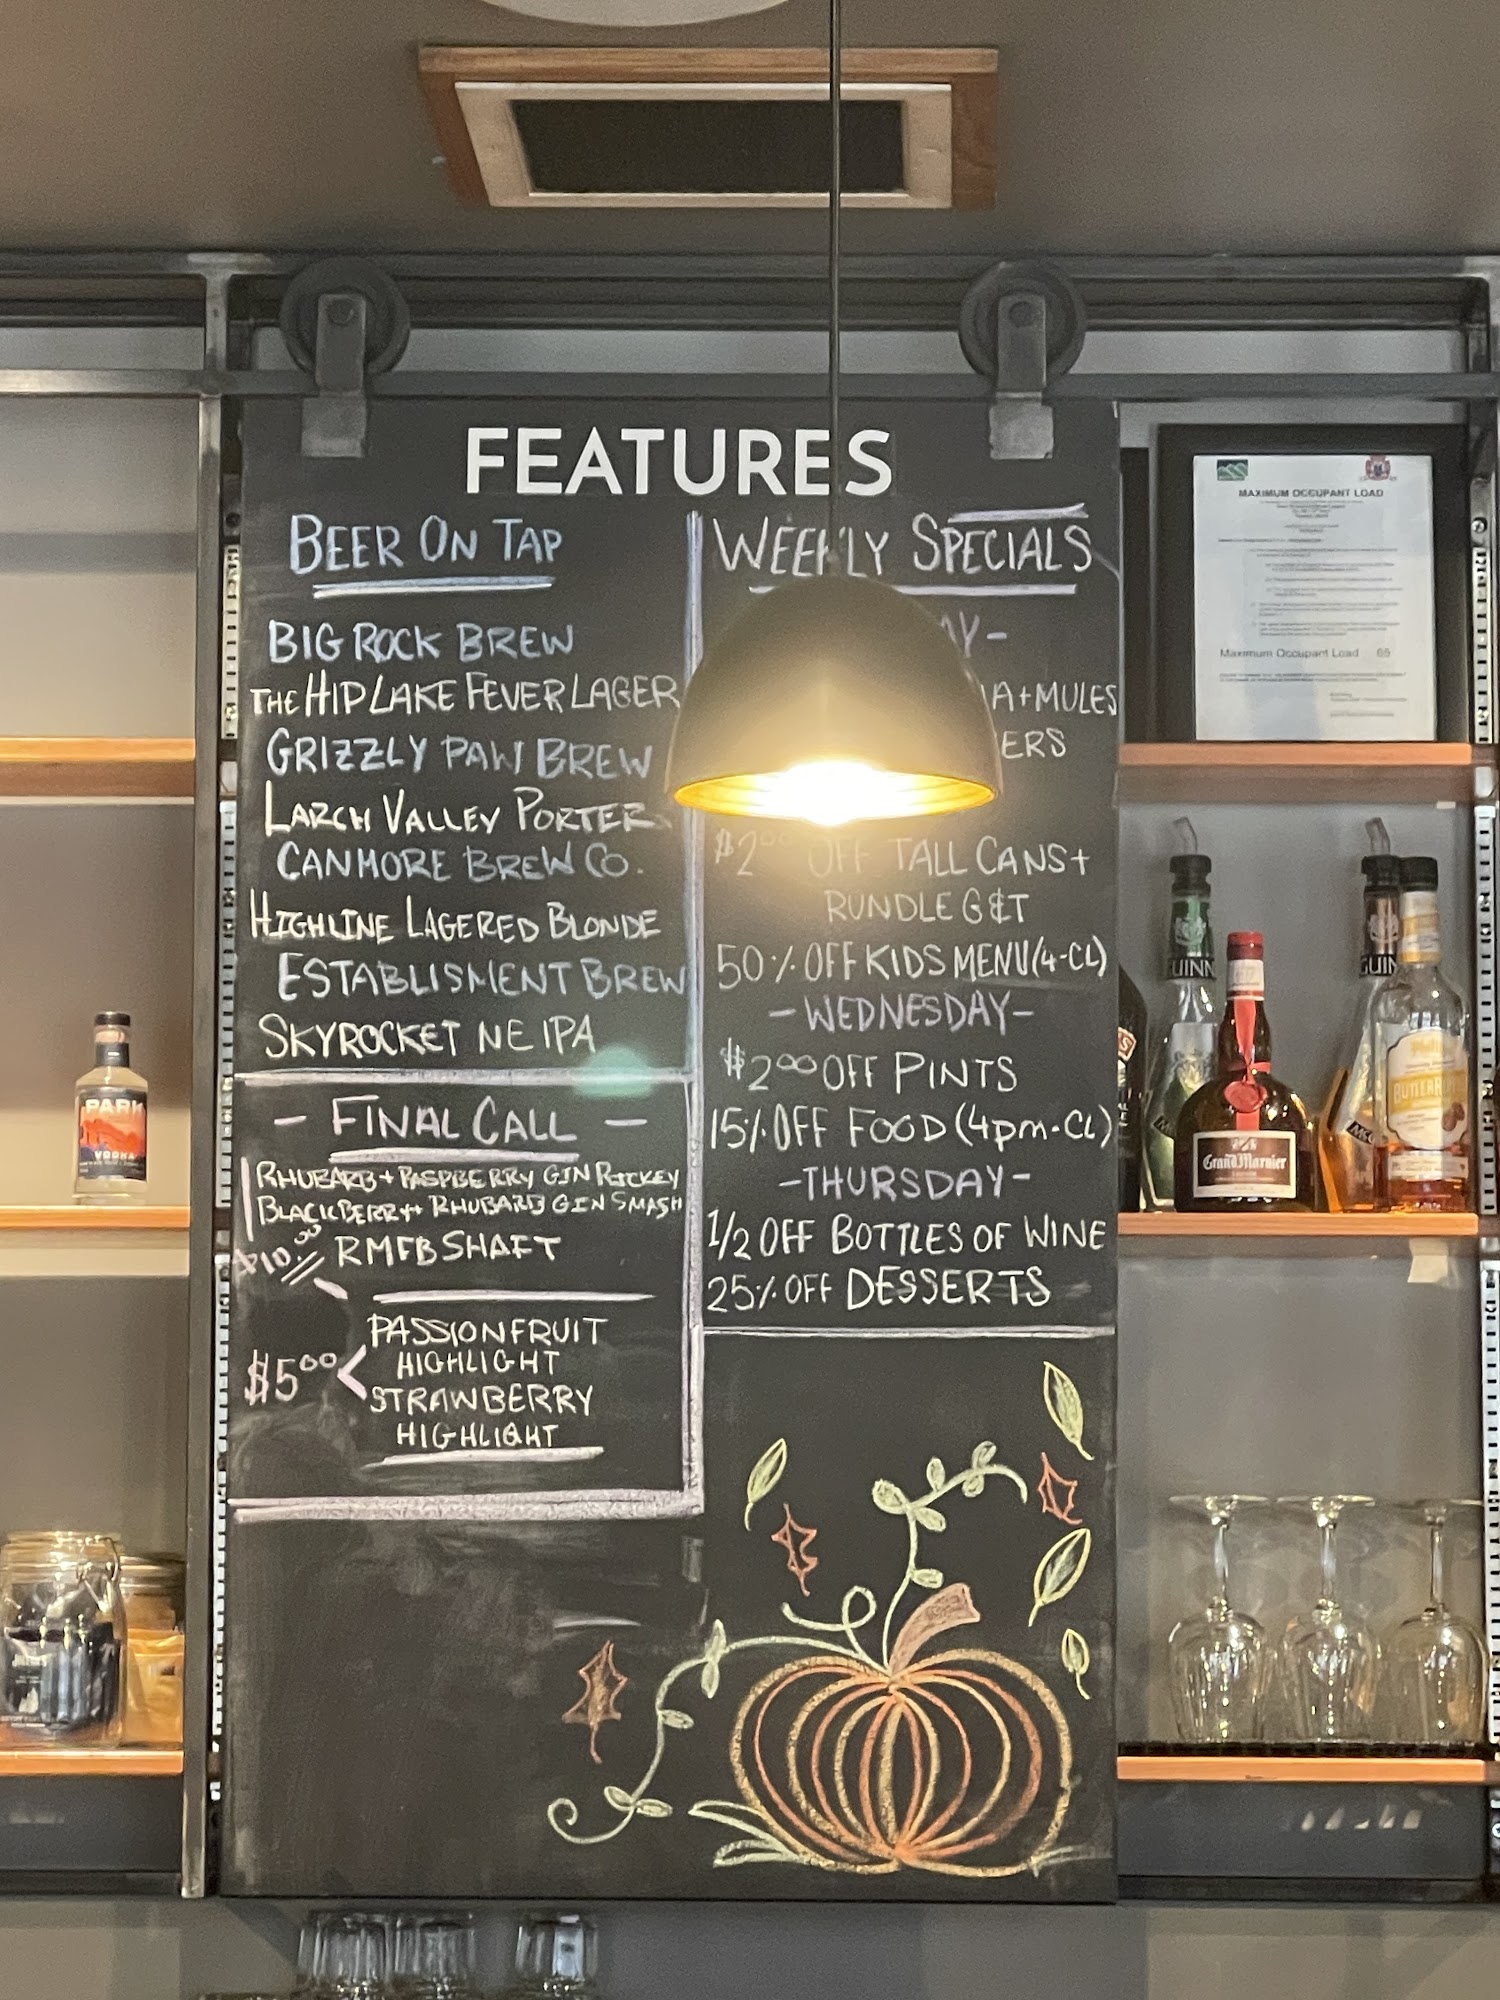 FEATURES
BEER ON TAP
BIG ROCK BREW
THE HIP LAKE FEVER LAGER
GRIZZLY PAW BREW
LARCH VALLEY PORTER
CANMORE BREW CO.
HIGHLINE LAGERED BLONDE
ESTABLISMENT BREW
SKYROCKET NE IPA
- FINAL CALL -
RHUBARB + RASPBERRY GIN RICKEY
BLACKBERRY + RHUBARB GIN SMASH
$10.00 RMFB SHAFT
PASSIONFRUIT
HIGHLIGHT
$5.00
STRAWBERRY
HIGHLIGHT
WEEKLY SPECIALS
AY -
A + MULES
ERS
$2.00 OFF TALL CANS +
RUNDLE G&T
50% OFF KIDS MENU (4-CL)
- WEDNESDAY -
$2.00 OFF PINTS
15% OFF FOOD (4pm-CL)
- THURSDAY -
1/2 OFF BOTTLES OF WINE
25% OFF DESSERTS
MAXIMUM OCCUPANT LOAD
Maximum Occupant Load
PARK
VODKA
GUINN
GUIN
Grand Marnier